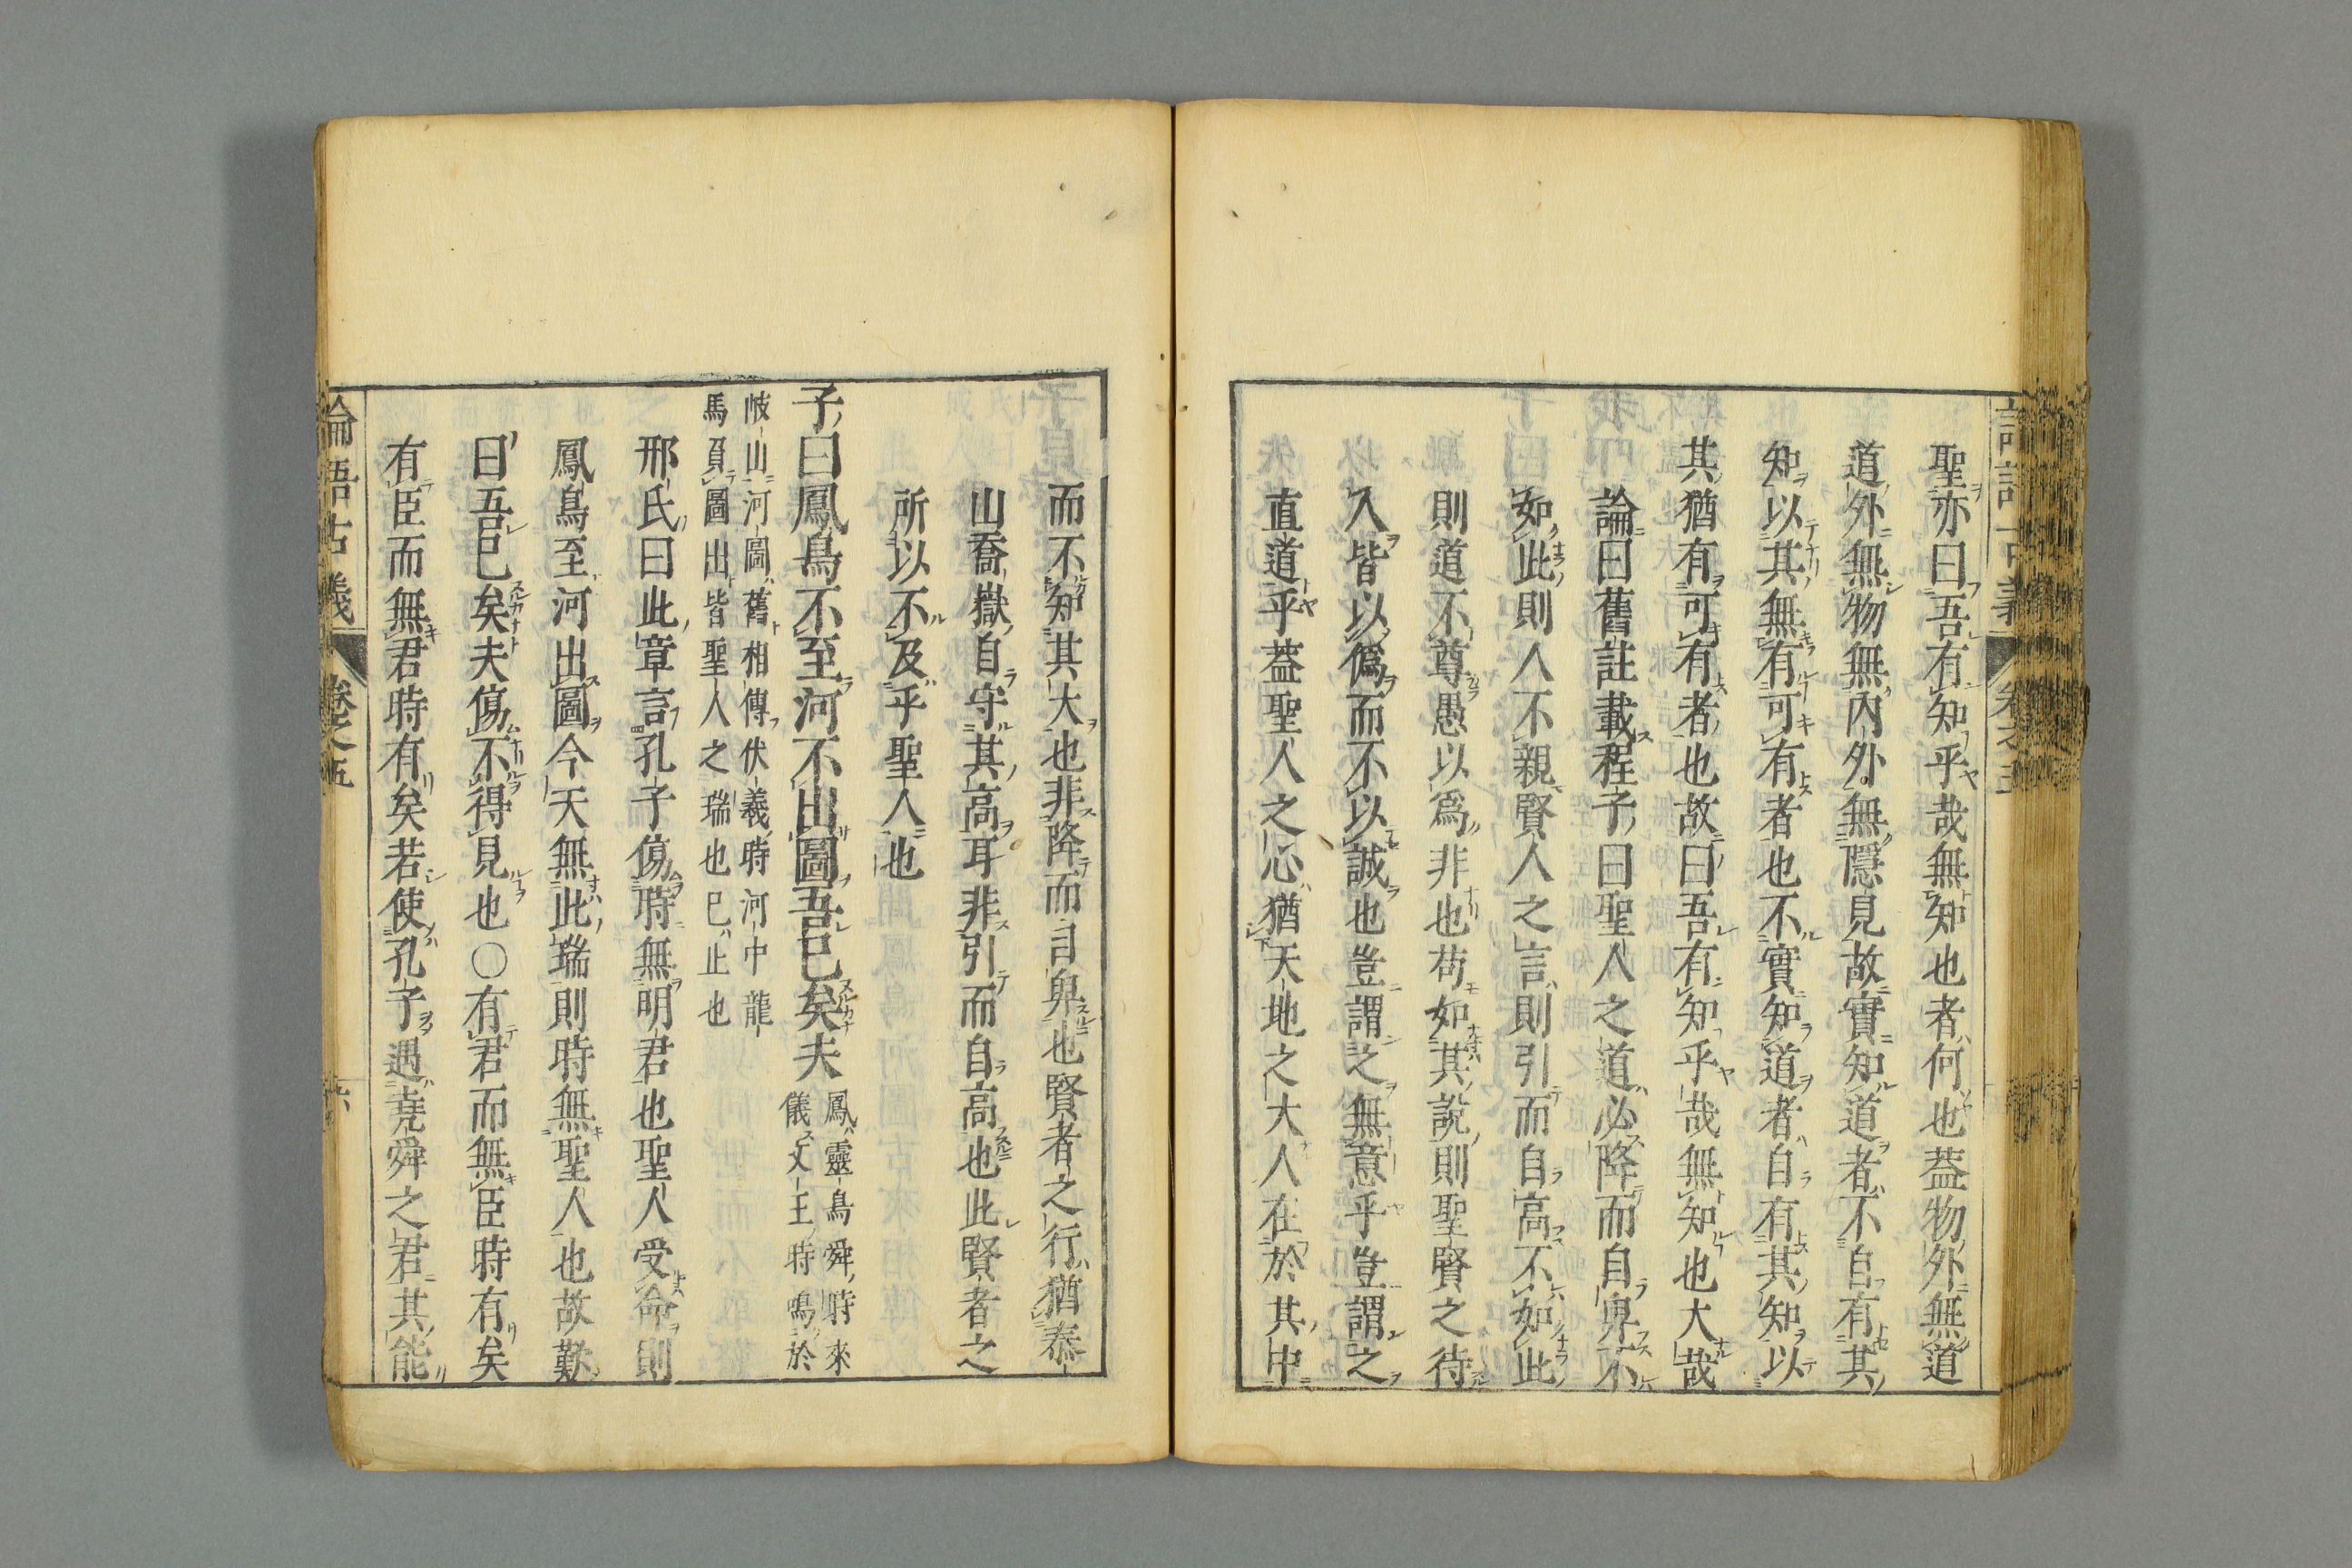 聖亦曰吾有知乎哉無知也者何也蓋物外無道
道外無物無內外無隱見故實知道者不自有其
知以其無有可有者也不實知道者自有其知以
其猶有可有者也故曰吾有知乎哉無知也大哉
論曰舊註載程子曰聖人之道必降而自卑不
如此則人不親賢人之言則引而自高不如此
則道不尊愚以爲非也苟如其說則聖賢之待
人皆以僞而不以誠也豈謂之無意乎豈謂之
直道乎蓋聖人之心猶天地之大人在於其中
而不知其大也非降而自卑也賢者之行猶泰
山喬嶽自守其高耳非引而自高也此賢者之
所以不及乎聖人也
子曰鳳鳥不至河不出圖吾已矣夫
鳳靈鳥舜時來
儀文王時鳴於
岐山河圖舊相傳伏羲時河中龍
馬負圖出皆聖人之瑞也已止也
邢氏曰此章言孔子傷時無明君也聖人受命則
鳳鳥至河出圖今天無此瑞則時無聖人也故歎
曰吾已矣夫傷不得見也〇有君而無臣時有矣
有臣而無君時有矣若使孔子遇堯舜之君其能
論語古義
卷之五